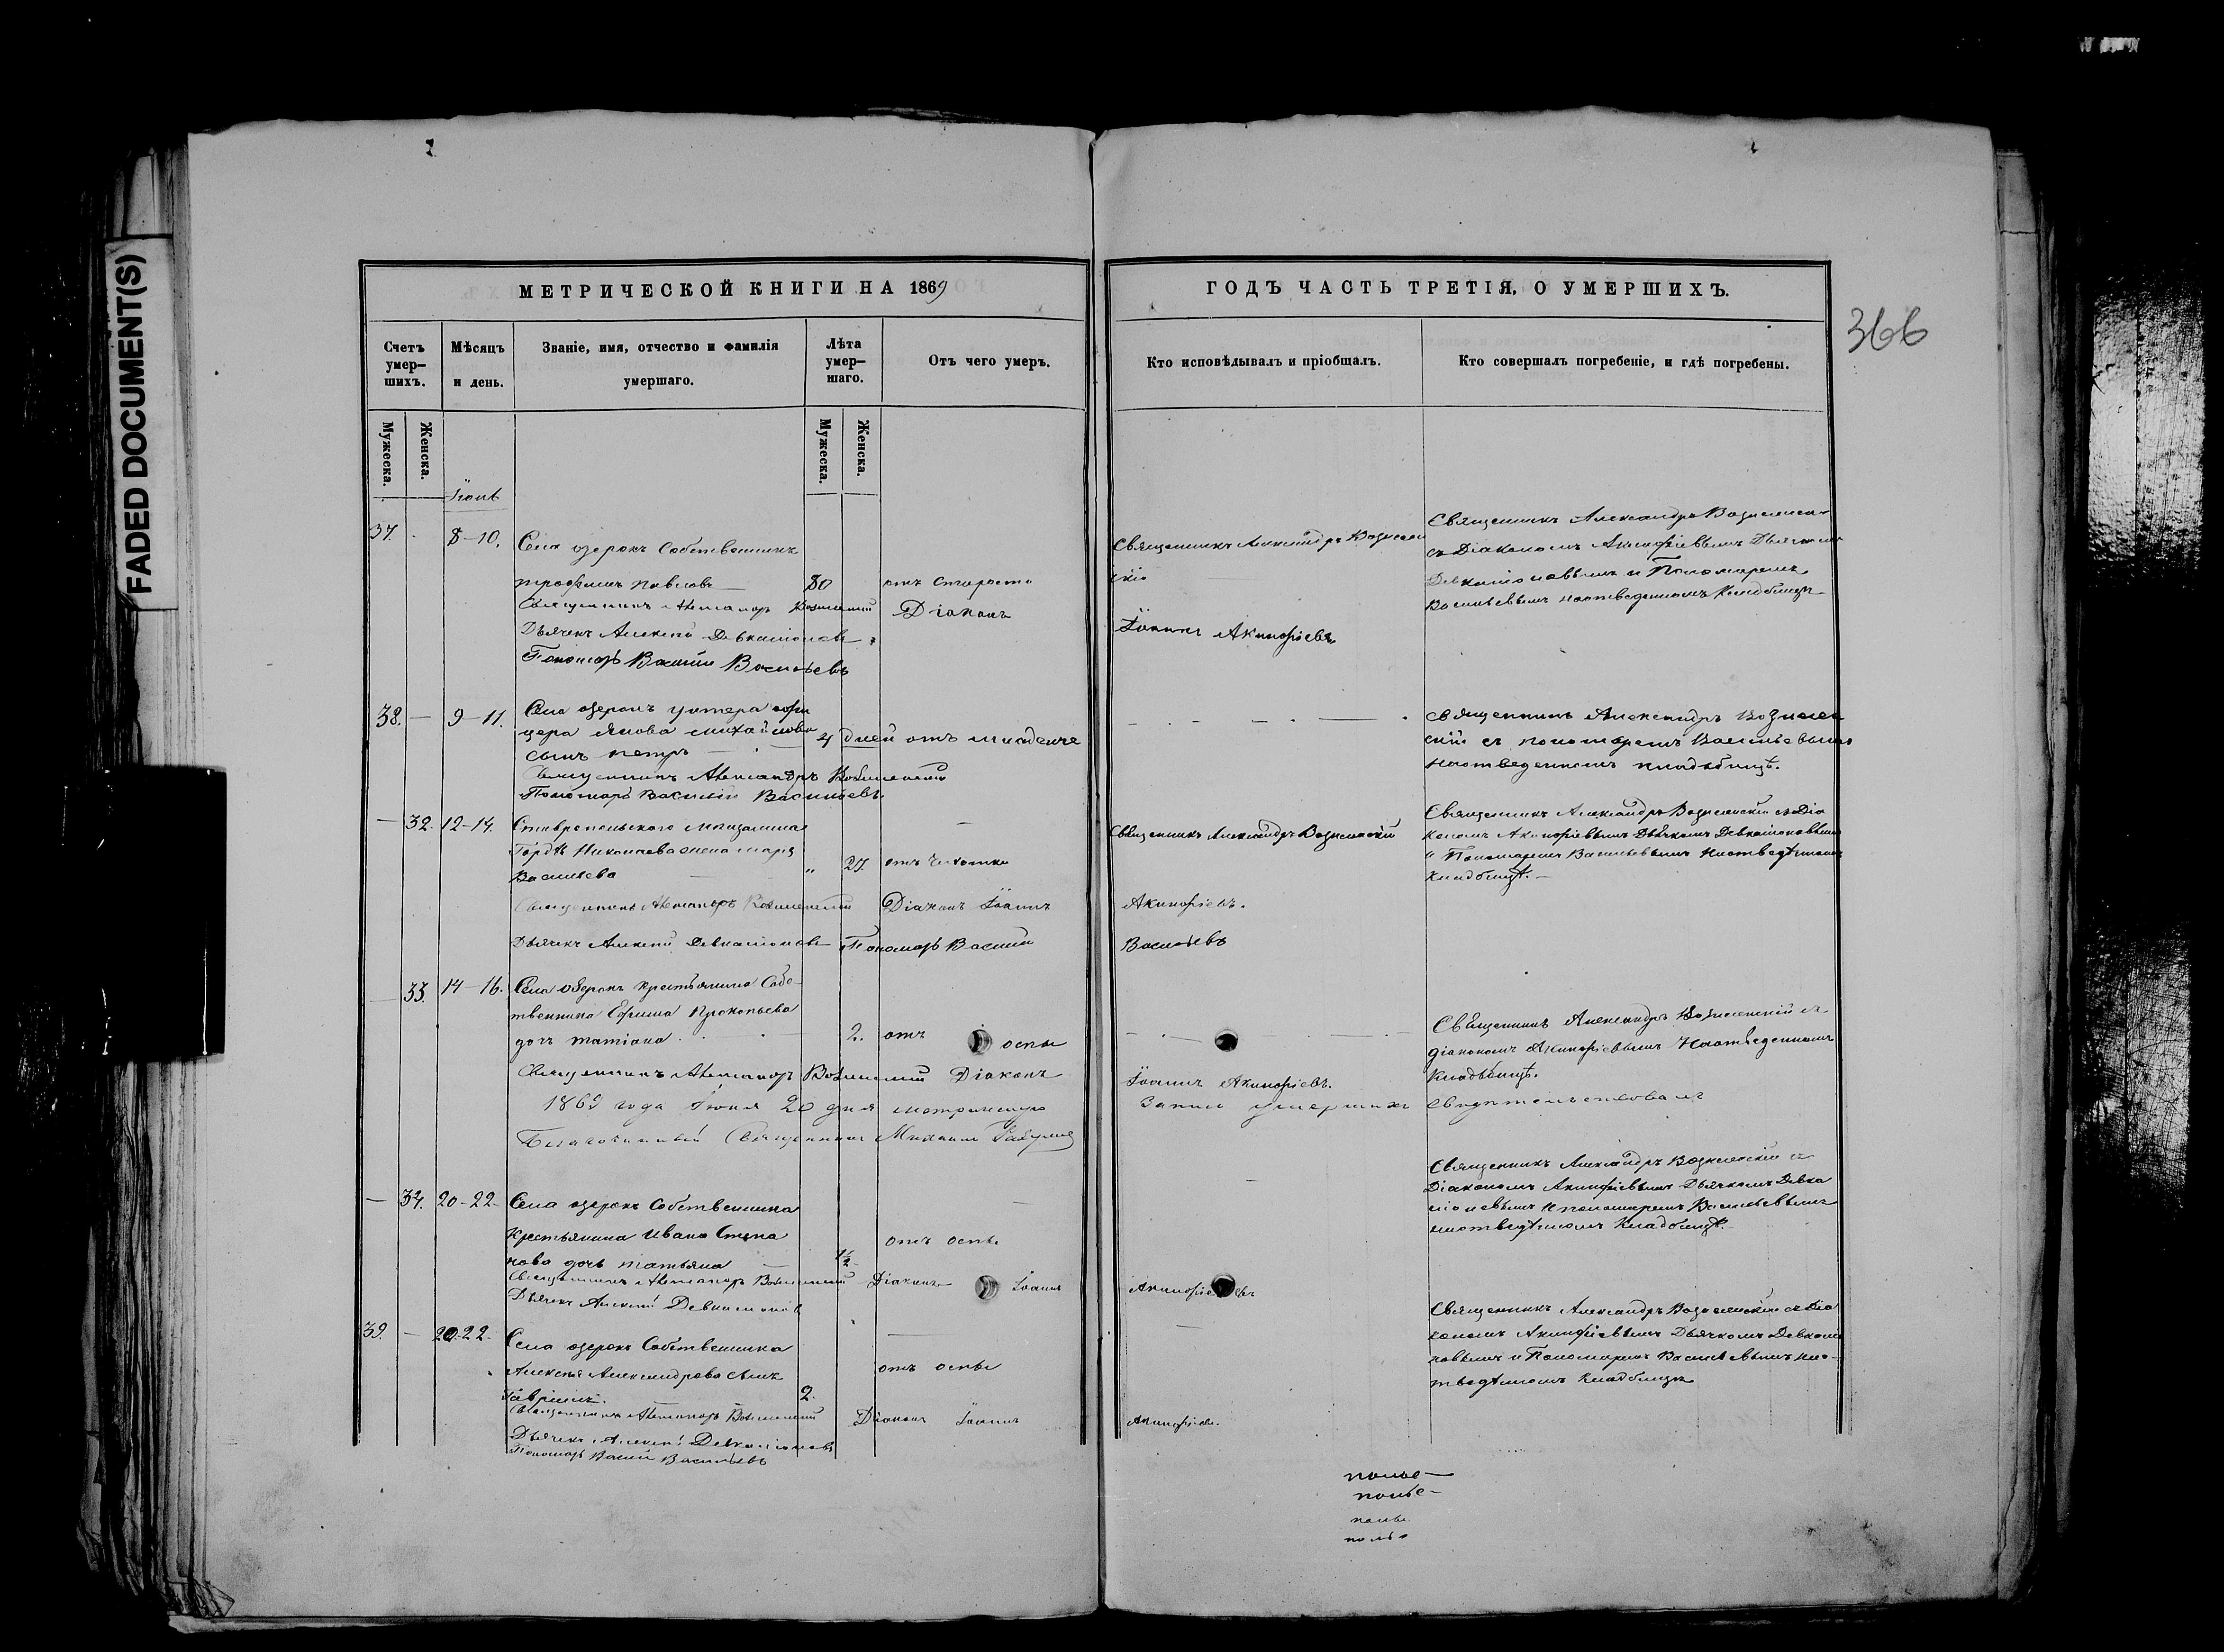 FADED DOCUMENT(S)
МЕТРИЧЕСКОЙ КНИГИ НА 1869
ГОДЪ ЧАСТЬ ТРЕТІЯ, О УМЕРШИХЪ.
366
Счетъ умер–шихъ.
Мѣсяцъ и день.
Званіе, имя, отчество и фамилія умершаго.
Лѣта умер–шаго.
Отъ чего умеръ.
Кто исповѣдывалъ и пріобщалъ.
Кто совершалъ погребеніе, и гдѣ погребены.
Мужеска.
Женска.
Мужеска.
Женска.
37. 8–10. Села озерокъ Собственникъ
трофимъ Павловъ 80 отъ старости
Священникъ Александръ Вознесен
скій
Священникъ Александръ Вознесен
съ Діакономъ Акинфіевымъ Дьячкомъ
Девкаліоновымъ и Пономаремъ
Васильевымъ наотведенномъ Кладбищѣ
Священникъ Александръ Вознесенскій Діаконъ Іоаннъ Акинфіевъ
Дьячекъ Алексѣй Девкаліоновъ
Пономарь Василій Васильевъ
38. — 9–11. Села озерокъ унтера офи
цера Якова михайлова
сынъ петръ дней отъ
Священникъ Александръ Вознесен
скій съ пономаремъ Васильевымъ
наотведенномъ кладбищѣ.
Священникъ Александръ Вознесенскій
Пономарь Василій Васильевъ.
— 32. 12–14. Ставропольскаго мѣщанина
Гордѣя Николаева жена марія
Васильева „ 27. отъ чахотки
Священникъ Александръ Вознесенскій
Священникъ Александръ Вознесенскій съ Діа
кономъ Акинфіевымъ Дьячкомъ Девкаліоновымъ
и Пономаремъ Васильевымъ наотведенномъ
Кладбищѣ.—
Священникъ Александръ Вознесенскій Діаконъ Іоаннъ Акинфіевъ.
Дьячекъ Алексѣй Девкаліоновъ Пономарь Василій Васильевъ
— 33. 14–16. Села озерокъ крестьянина Собс–
твенника Ефима Прокопьева
дочь татіана 2. отъ оспы
Священникъ Александръ Вознесенскій съ
діакономъ Акинфіевымъ Наотведенномъ
Кладбищѣ.
Священникъ Александръ Вознесенскій Діаконъ Іоаннъ Акинфіевъ.
1869 года Іюня 20 дня метрическую Запись умершихъ свидѣтельствовалъ
Благочинный Священникъ Михаилъ
— 34. 20–22– Села озерокъ Собственника
Крестьянина Ивана Степа
нова дочь татьяна ½ отъ оспы
Священникъ Александръ Вознесенскій съ
Діакономъ Акинфіевымъ Дьячкомъ Девка
ліоновымъ и пономаремъ Васильевымъ
наотведѣнномъ Кладбищѣ.
Священникъ Александръ Вознесенскій Діаконъ Іоаннъ Акинфіевъ
Дьячекъ Алексѣй Девкаліоновъ
39. — 20–22– Села озерокъ Собственника
Алексѣя Александрова сынъ
Гавріилъ. 2. отъ оспы
Священникъ Александръ Вознесенскій съ Діа
кономъ Акинфіевымъ Дьячкомъ Девкаліо
новымъ и Пономаремъ Васильевымъ нао–
тведѣнномъ Кладбищѣ
Священникъ Александръ Вознесенскій Діаконъ Іоаннъ Акинфіевъ.
Дьячекъ Алексѣй Девкаліоновъ
Пономарь Василій Васильевъ